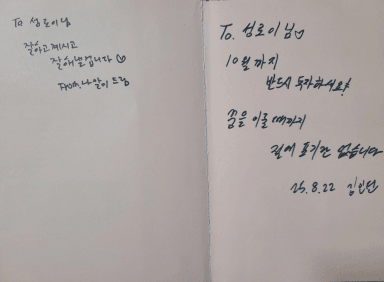 To 성로이님
잘하고 계시고
잘해낼겁니다 ♡
From. 나알이 드림
To. 성로이님♡
10월까지
반드시 독자하세요!
꿈을 이룰 때까지
길에 포기란 없습니다
25.8.22